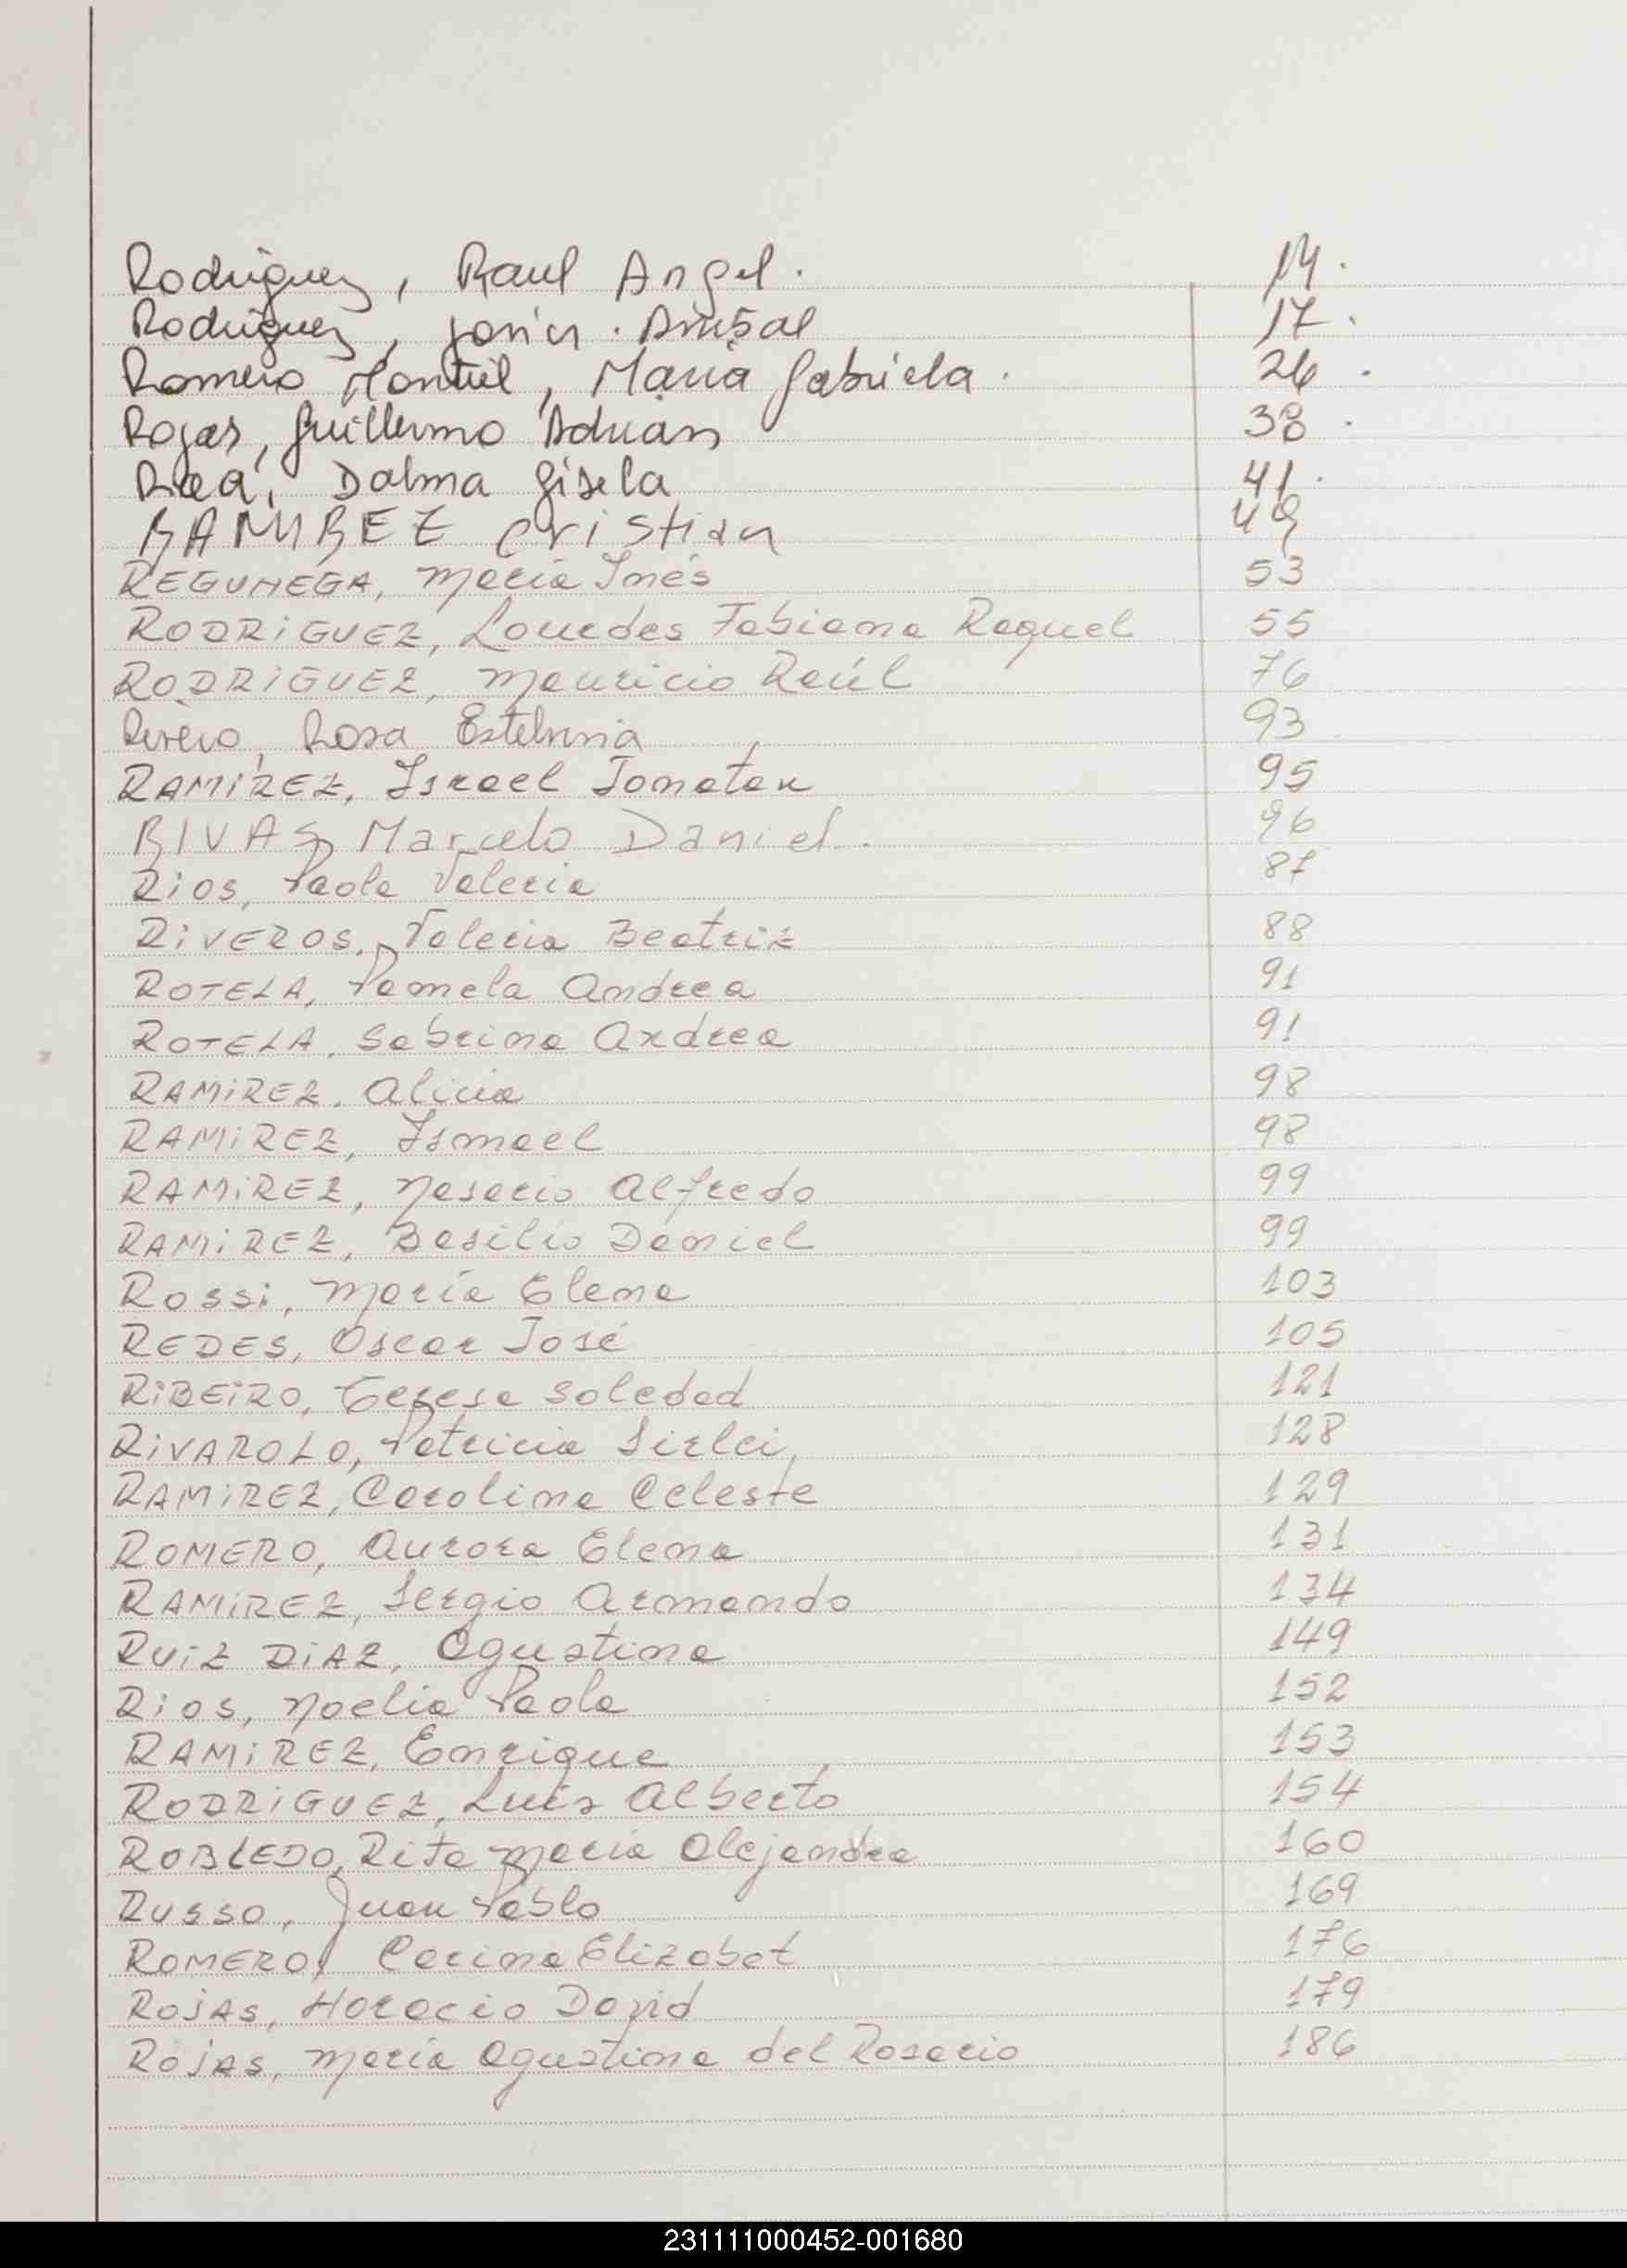 Rodriguez, Raul Angel. 14.
Rodriguez, Javier Anibal 17.
Romero Montiel, Maria Gabriela. 26.
Rojas, Guillermo Adrian 38.
Dalma Gisela 41.
RAMIREZ Cristian 49
REGUNEGA, María Inés 53
RODRiGUEZ, Lourdes Fabiana Raquel 55
RODRiGUEZ, Mauricio Raúl 76
Rosa 93
RAMíREZ, Israel Jonatan 95
RIVAS Marcelo Daniel. 96
Rios, Paola Valeria 87
RiVEROS, Valeria Beatriz 88
ROTELA, Pamela Andrea 91
ROTELA, Sabrina Andrea 91
RAMiREZ, Alicia 98
RAMiREZ, Ismael 98
RAMiREZ, Nasario Alfredo 99
RAMiREZ, Basilio Daniel 99
Rossi, María Elena 103
REDES, Oscar José 105
RiBEiRO, Teresa Soledad 121
RiVAROLO, Patricia Sirlei 128
RAMiREZ, Carolina Celeste 129
ROMERO, Aurora Elena 131
RAMiREZ, Sergio Armando 134
RUiZ DiAZ, Agustina 149
Rios, Noelia Paola 152
RAMiREZ, Enrique 153
RODRiGUEZ, Luis Alberto 154
ROBLEDO, Rita María Alejandra 160
RUSSO, Juan Pablo 169
ROMERO, Carina Elizabet 176
ROjAS, Horacio David 179
ROjAS, María Agustina del Rosario 186
231111000452-001680